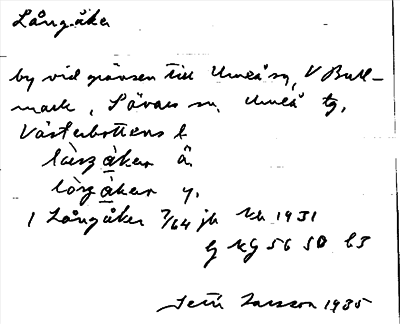 Långåker
by vid gränsen till Umeå sn, V Bull-
mark, Sävars sn, Umeå tg,
Västerbottens l.
åker ä.
åker y.
1 Långåker 7/64 jb kb 1931
G kg 56 50 63
Larsson 1935